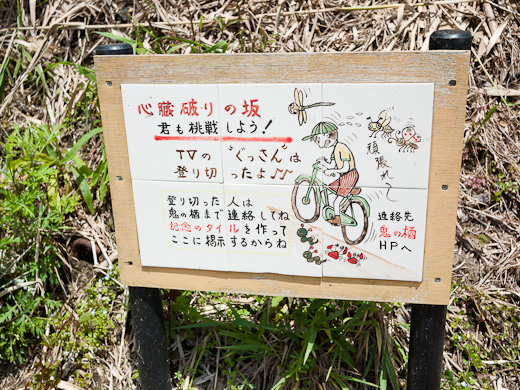 心臓破りの坂
君も挑戦しよう!
TVの"ぐっさん"は
登り切ったよ♪♪
登り切った人は
鬼の栖まで連絡してね
記念のタイルを作って
ここに掲示するからね
頑張れ〜
連絡先
鬼の栖
HPへ